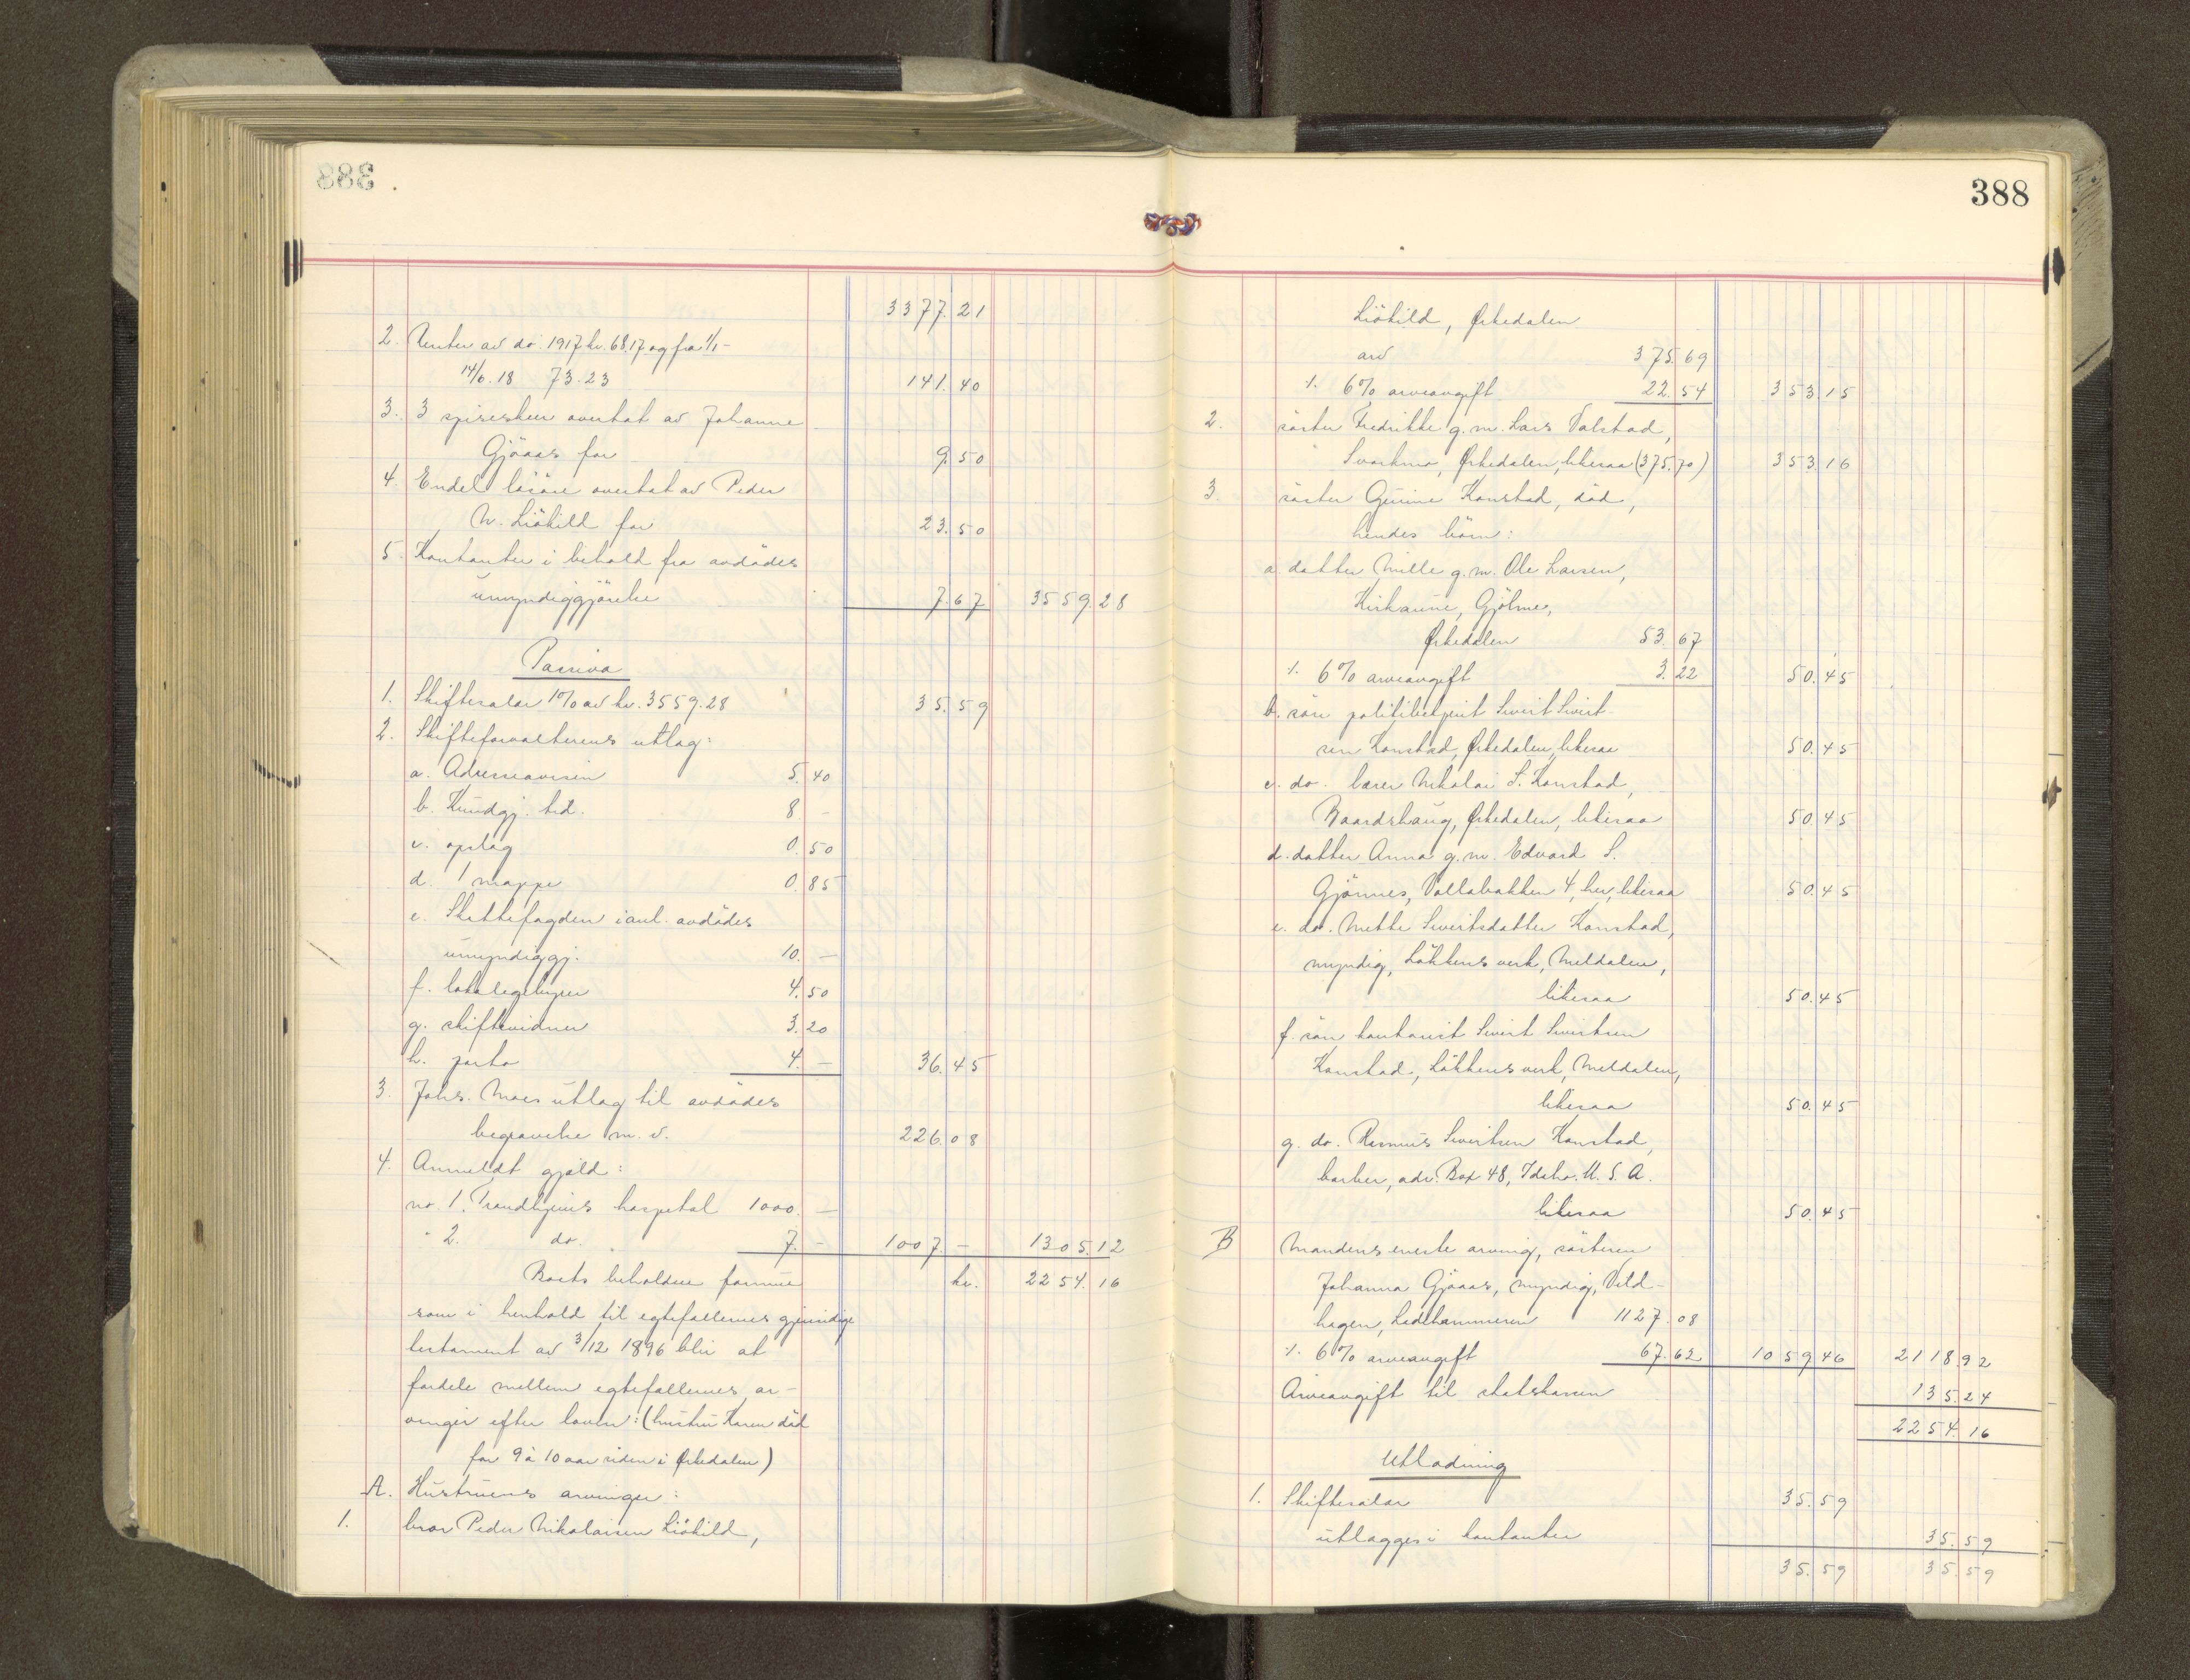 383
3377.21
2. Renter av do. 1917 kr. 68.17 og fra 1/1-
14/6.18 73.23 141.40
3. 3 spiseskeer overtat av Johanne
Gjöaas for 9.50
4. Endel lösöre overtat av Peder
N. Liökild for 23.50
5. Kontanter i behold fra avdödes
umyndiggjörelse 7.67 3559.28
Passiva
1. Skiftesalær 1% av kr. 3559.28 35.59
2. Skifteforvalterens utlag:
a. Adresseavisen 5.40
b. Kundgj. tid. 8.-
c. opslag 0.50
d. 1 mappe 0.85
e. Skattefogden i anl. avdödes
umyndiggj. 10.-
f. lokalegebyrer 4.50
g. skiftevidner 3.20
h. porto 4.- 36.45
3. Johs. Moes utlag til avdödes
begravelse m.v. 226.08
4. Anmeldt gjæld:
no. 1. Trondhjems hospital 1000.-
" 2. do. 7.- 1007.- 1305.12
Boets beholdne formue kr. 2254.16
som i henhold til egtefællernes gjensidige
testament av 3/12 1896 blir at
fordele mellem egtefællernes ar-
vinger efter loven: (hustru Karen död
for 9 à 10 aar siden i Ørkedalen)
A. Hustruens arvinger:
1. bror Peder Nikolaisen Liökild,
388
Liökild, Ørkedalen
arv 375.69
÷ 6% arveavgift 22.54 353.15
2. söster Fredrikke g.m. Lars Valstad,
Svorkmo, Ørkedalen, likesaa (375.70) 353.16
3. söster Gurine Konstad, död,
hendes börn:
a. datter Mille g.m. Ole Larsen,
Kirkaune, Gjölme,
Ørkedalen 53.67
÷ 6% arveavgift 3.22 50.45
b. sön politibetjent Sivert Sivert-
sen Konstad, Ørkedalen, likesaa 50.45
c. do. lærer Nikolai S. Konstad,
Baardshaug, Ørkedalen, likesaa 50.45
d. datter Anna g.m. Edvard S.
Gjönnes, Vollabakken 4, her, likesaa 50.45
e. do. Mette Sivertsdatter Konstad,
myndig, Lökkens verk, Meldalen,
likesaa 50.45
f. sön kontorist Sivert Sivertsen
Konstad, Lökkens verk, Meldalen,
likesaa 50.45
g. do. Rasmus Sivertsen Konstad,
barber, adr. Box 48, Idaho. U.S.A.
likesaa 50.45
B Mandens eneste arving, sösteren
Johanna Gjöaas, myndig, Vild-
hagen, Ladehammeren 1127.08
÷ 6% arveavgift 67.62 1059.46 2118.92
Arveavgift til statskassen 135.24
2254.16
Utlodning
1. Skiftesalær 35.59
utlægges i kontanter 35.59
35.59 35.59